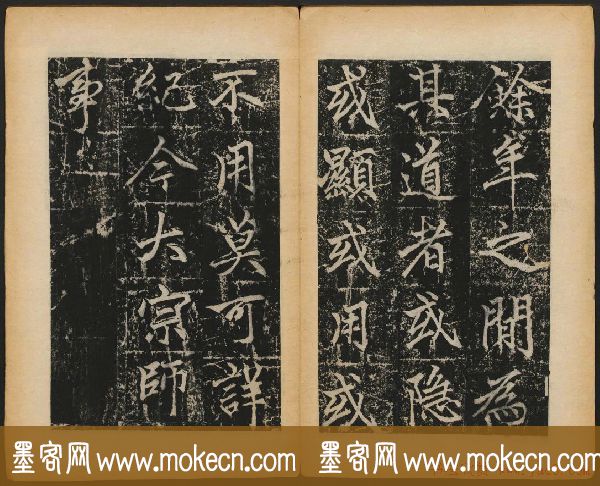 餘年之閒為
其道者或隐
或顯或用或
不用莫可詳
紀今大宗師
事
墨客网 www.mokecn.com 墨客网 www.mokecn.com